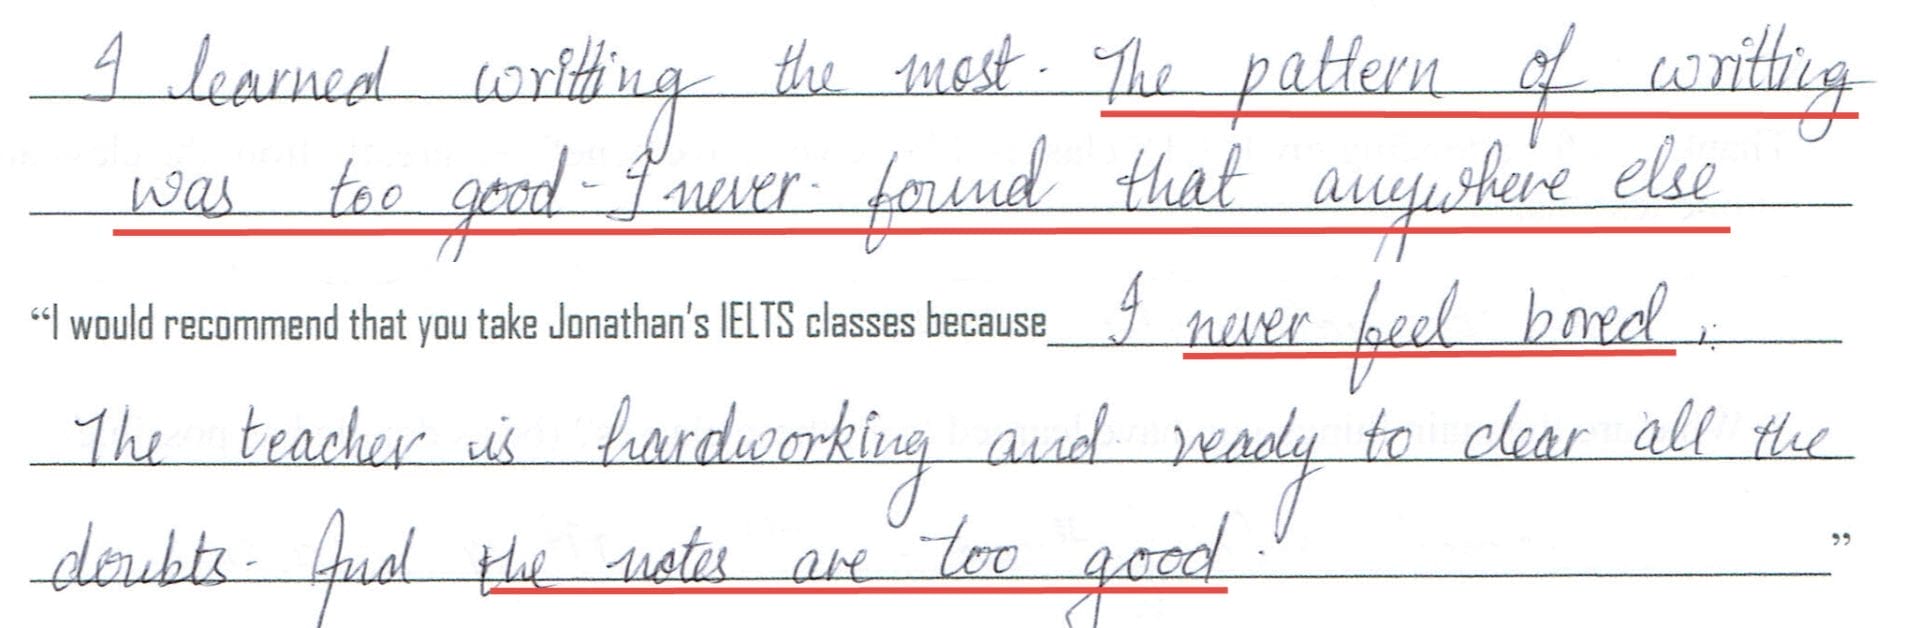 I learned writting the most. The pattern of writting
was too good - I never found that anywhere else
“I would recommend that you take Jonathan’s IELTS classes because I never feel bored.
The teacher is hardworking and ready to clear all the
doubts. And the notes are too good. ”